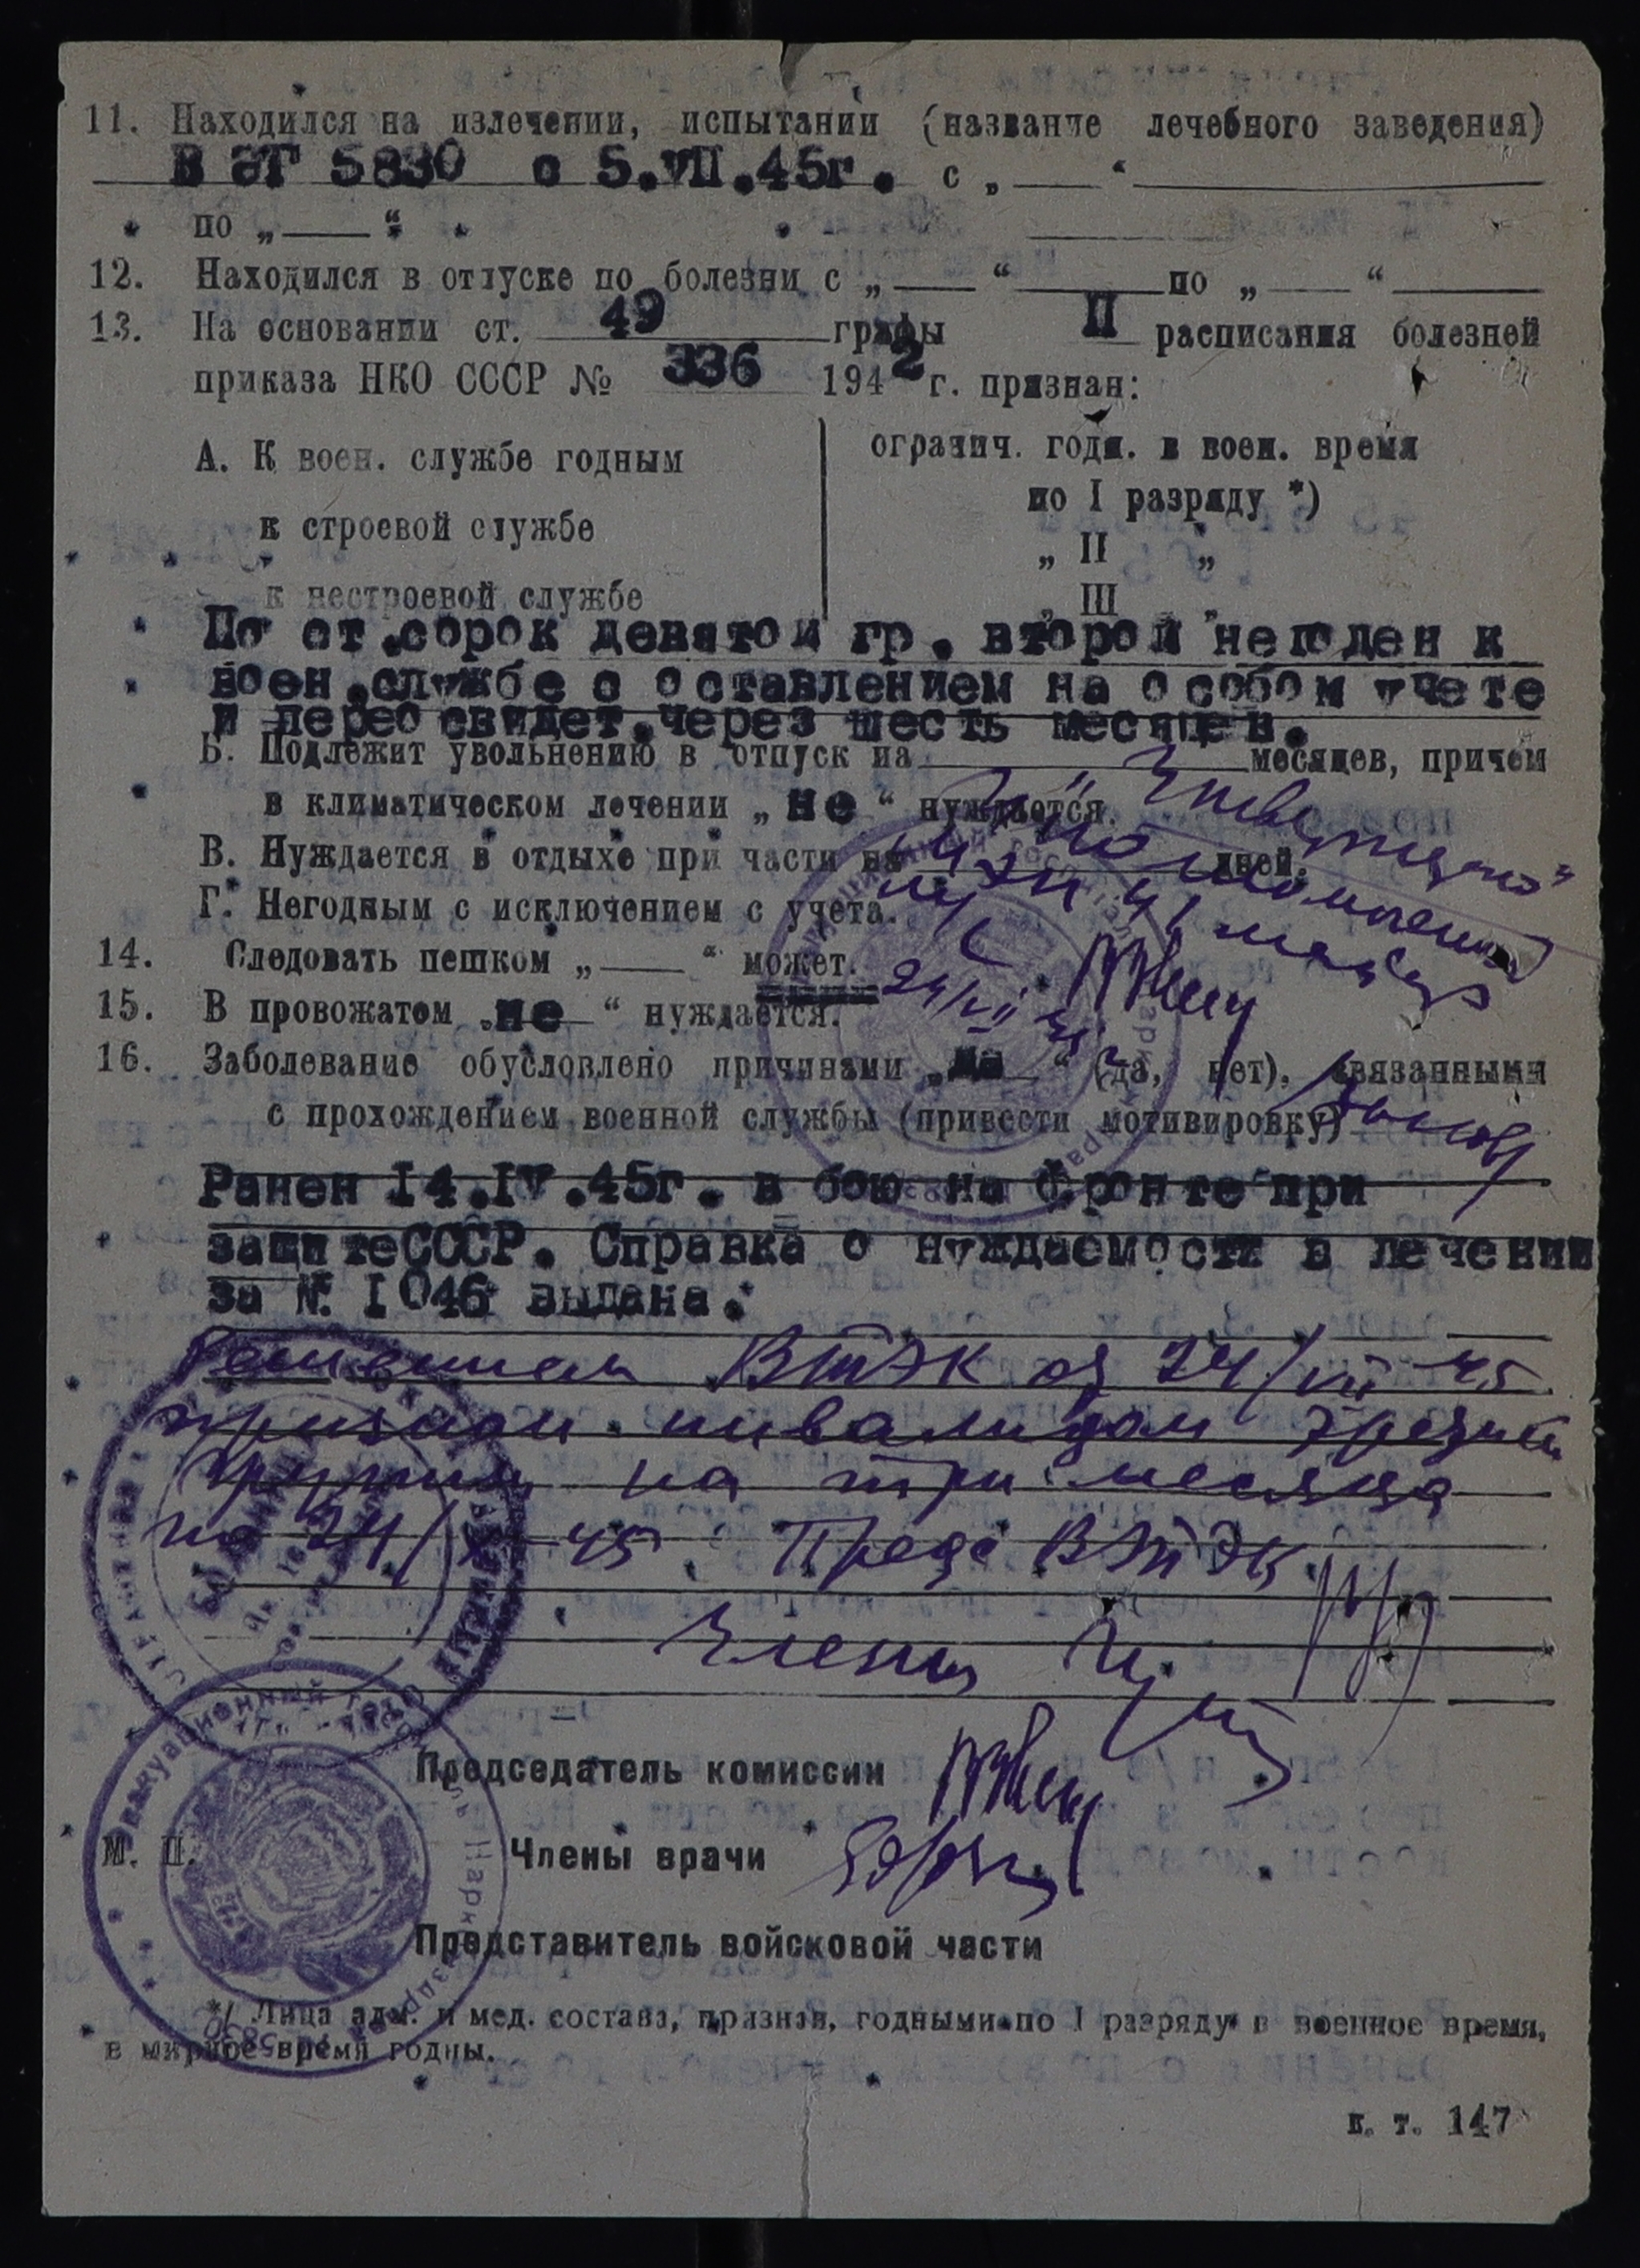 11. Находился на излечении, испытании (название лечебного заведения)
В ЭГ 5830 с 5.VII.45г. с „ “
по „ “
12. Находился в отпуске по болезни с „ “ по „ “
13. На основании ст. 49 графы II расписания болезней
приказа НКО СССР № 336 1942 г. признан:
А. К воен. службе годным
к строевой службе
к нестроевой службе
огранич. годн. в воен. время
по I разряду *)
„ II „
„ III „
По ст.сорок девятой гр. второй негоден к
воен.службе с оставлением на особом учете
и переосвидет.через шесть месяцев.
Б. Подлежит увольнению в отпуск на месяцев, причем
в климатическом лечении „не“ нуждается.
В. Нуждается в отдыхе при части на дней.
Г. Негодным с исключением с учета.
14. Следовать пешком „ “ может.
15. В провожатом „не“ нуждается.
24/VII 45
16. Заболевание обусловлено причинами „да“ (да, нет), связанными
с прохождением военной службы (привести мотивировку)
Ранен 14.IV.45г. в бою на фронте при
защите СССР. Справка о нуждаемости в лечении
за № 1046 выдана.
Решением ВТЭК от 24/VII 45
признан инвалидом третьей
группы на три месяца
по 24/X-45. Пред. ВТЭК
Члены
Председатель комиссии
М. П.
Члены врачи
Представитель войсковой части
*/ Лица адм. и мед. состава, признан. годными по I разряду в военное время,
в мирное время годны.
к. т. 147